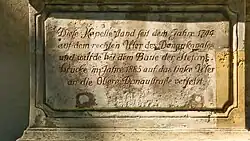 Diese Kapelle stand seit dem Jahre
auf dem rechten Ufer des Donaukanales
und wurde bei dem Baue der Stefans-
brücke im Jahre 1885 auf das linke Ufer
an die Obere Donaustraße versetzt.